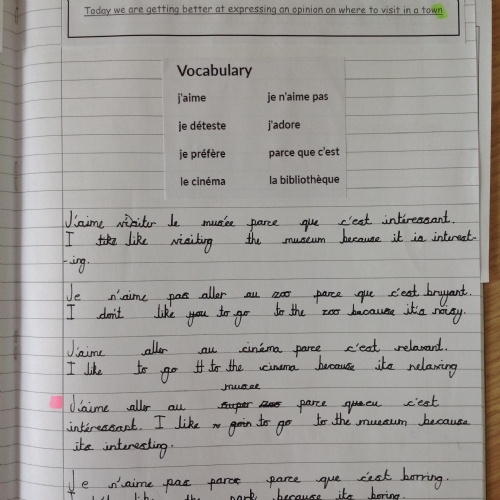 Today we are getting better at expressing an opinion on where to visit in a town
Vocabulary
j'aime je n'aime pas
je déteste j'adore
je préfère parce que c'est
le cinéma la bibliothèque
J'aime visiter le musée parce que c'est intéressant.
I like visiting the museum because it is interest-
-ing.
Je n'aime pas aller au zoo parce que c'est bruyant.
I don't like you to go to the zoo because it's noisy.
J'aime aller au cinéma parce c'est relaxant.
I like to go to the cinema because its relaxing
musée
J'aime aller au super zoo parce que c'est
intéressant. I like goin to go to the museum because
its interesting.
Je n'aime pas parc parce que c'est borring.
I like the park because its boring.